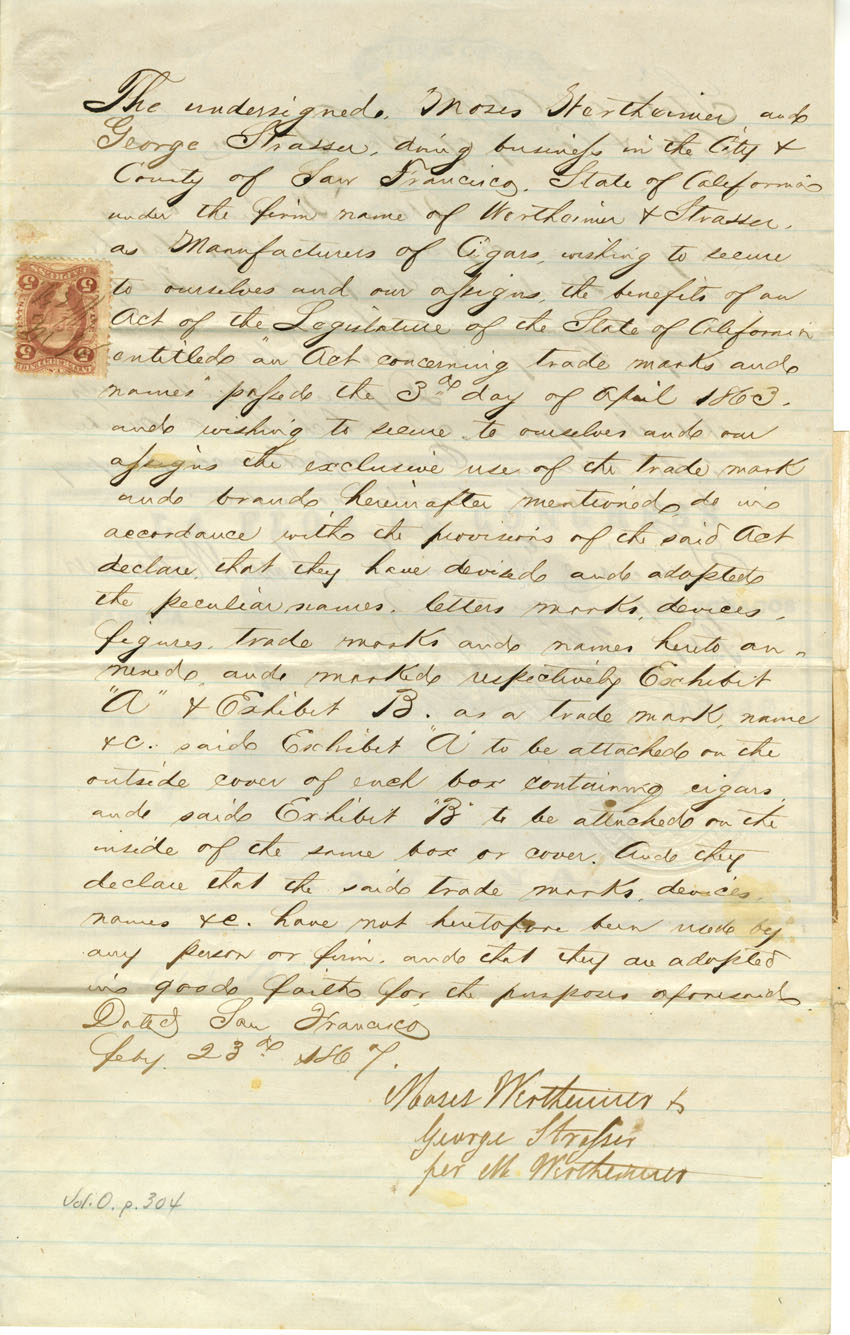 The undersigned, Moses Wertheimer and
George Strasser, doing business in the City &
County of San Francisco, State of California
under the firm name of Wertheimer & Strasser,
as Manufacturers of Cigars, wishing to secure
to ourselves and our assigns, the benefits of an
Act of the Legislature of the State of California
entitled "an Act concerning trade marks and
names" passed the 3d day of April 1863.
and wishing to secure to ourselves and our
assigns the exclusive use of the trade mark
and brand hereinafter mentioned do in
accordance with the provisions of the said Act
declare, that they have devised and adopted
the peculiar names, letters marks, devices,
figures, trade marks and names hereto an-
nexed, and marked respectively Exhibit
"A" & Exhibit B. as a trade mark, name
&c. said Exhibit "A" to be attached on the
outside cover of each box containing cigars,
and said Exhibit "B" to be attached on the
inside of the same box or cover. And they
declare that the said trade marks, devices,
names &c. have not heretofore been used by
any person or firm, and that they are adopted
in good faith for the purposes aforesaid.
Dated San Francisco
feby. 23d 1867.
Moses Wertheimer &
George Strasser
per M Wertheimer
Vol. O. p. 304
5
5
5
5